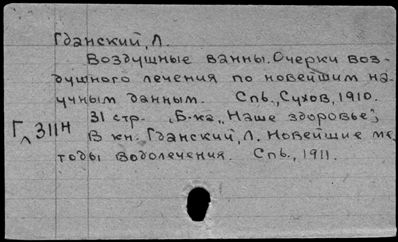 Гданский, Л.
Воздушные ванны. Очерки воз-
душного лечения по новейшим на-
учным данным. Спб., Сухов, 1910.
31 стр. (Б-ка „Наше здоровье";
Г 311н
В кн.: Гданский, Л. Новейшие ме-
тоды водолечения. Спб., 1911.